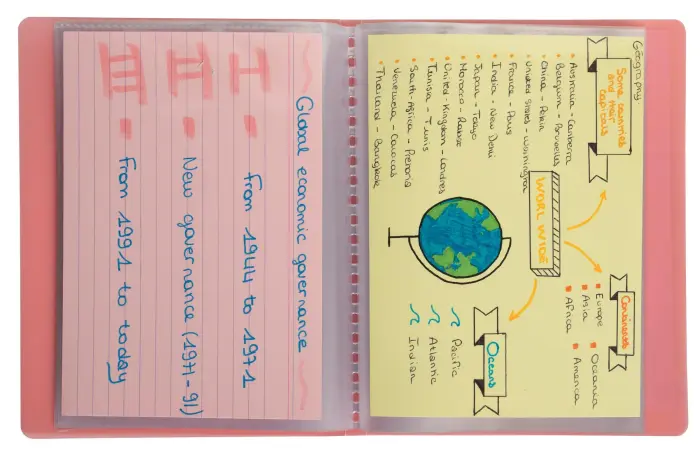 Géography
Some countries
and their
capitals
• Australia - Canberra
• Belgium - Bruxelles
• China - Pékin
• United States - Washington
• France - Paris
• India - New Delhi
• Japan - Tokyo
• Morocco - Rabat
• United-Kingdom - Londres
• Tunisia - Tunis
• South-Africa - Pretoria
• Venezuela - Caracas
• Thailand - Bangkok
WORLWIDE
Continents
Europe
Asia
Africa
Oceania
America
Oceans
Pacific
Atlantic
Indian
Global economic governance
I - from 1944 to 1971
II - New governance (1971-91)
III - From 1991 to today